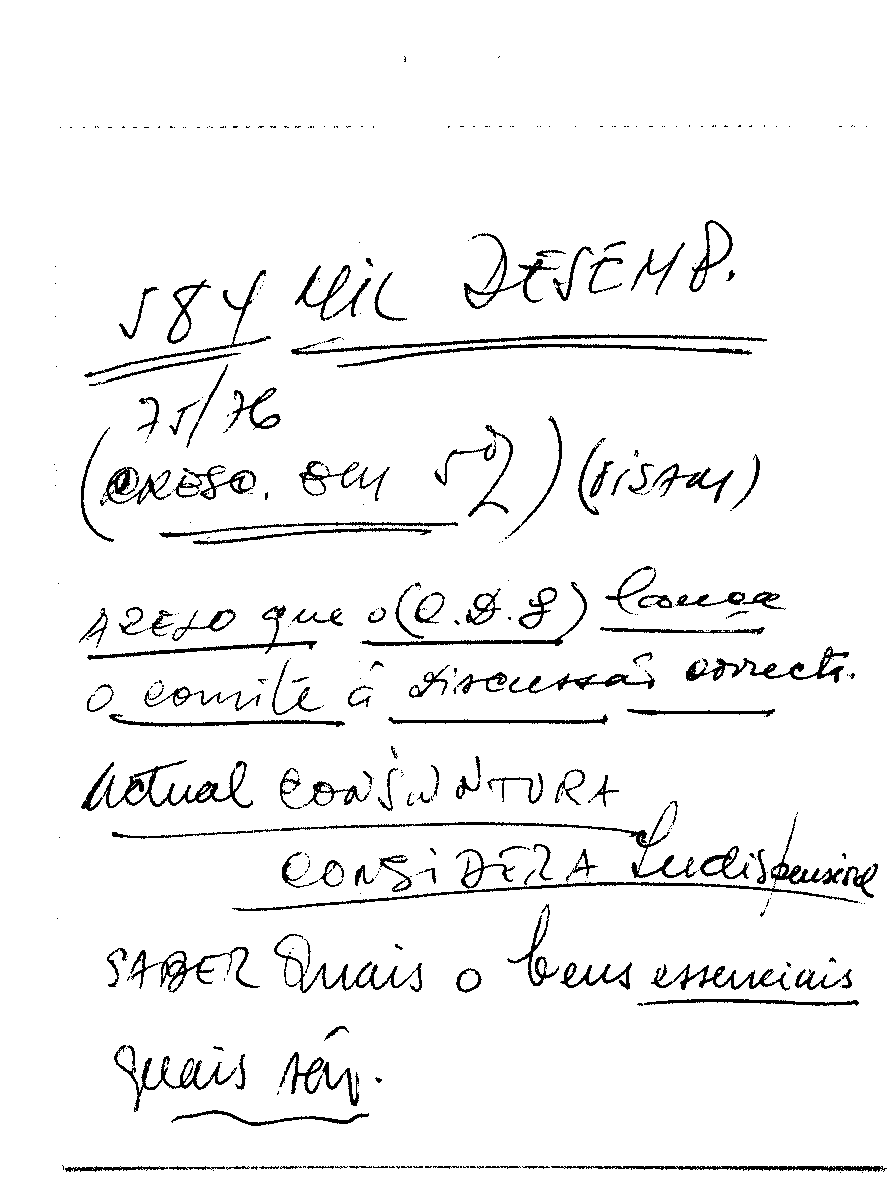 584 MIL DESEMP.
75/76
(CRESC. EM 5%)
que o (C.D.S) lança
o comité à discussão correct.
Actual CONJUNTURA
CONSIDERA Indispensável
SABER Quais o bens essenciais
quais são.